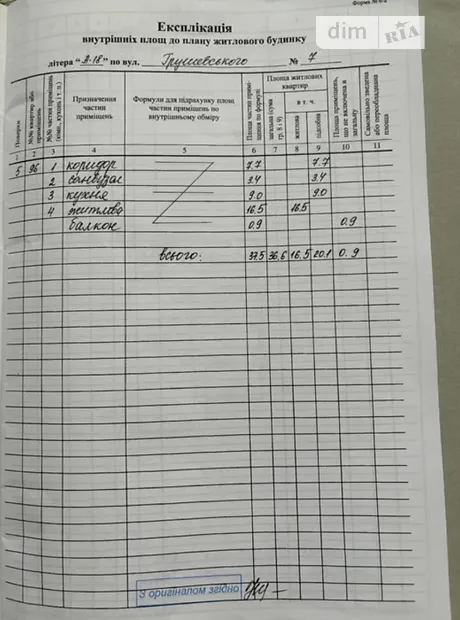 dim RIA
Експлікація
внутрішніх площ до плану житлового будинку
літера "А-18" по вул. Грушевського № 7
Поверхи
№№ квартир або приміщень
№№ частин приміщень (кімн., кухонь і т. п.)
Призначення частин приміщень
Формули для підрахунку площ частин приміщень по внутрішньому обміру
Площа частин приміщення по формулі
Площа житлових квартир
загальна (сума гр. 8 і 9)
в т. ч.
житлова
підсобна
Площа приміщень, що не включена в загальну
Самовільно зведена або переобладнана площа
1 2 3 4 5 6 7 8 9 10 11
5 96 1 коридор 7.7 7.7
2 санвузол 3.4 3.4
3 кухня 9.0 9.0
4 житлова 16.5 16.5
балкон 0.9 0.9
всього: 37.5 36.6 16.5 20.1 0.9
З оригіналом згідно